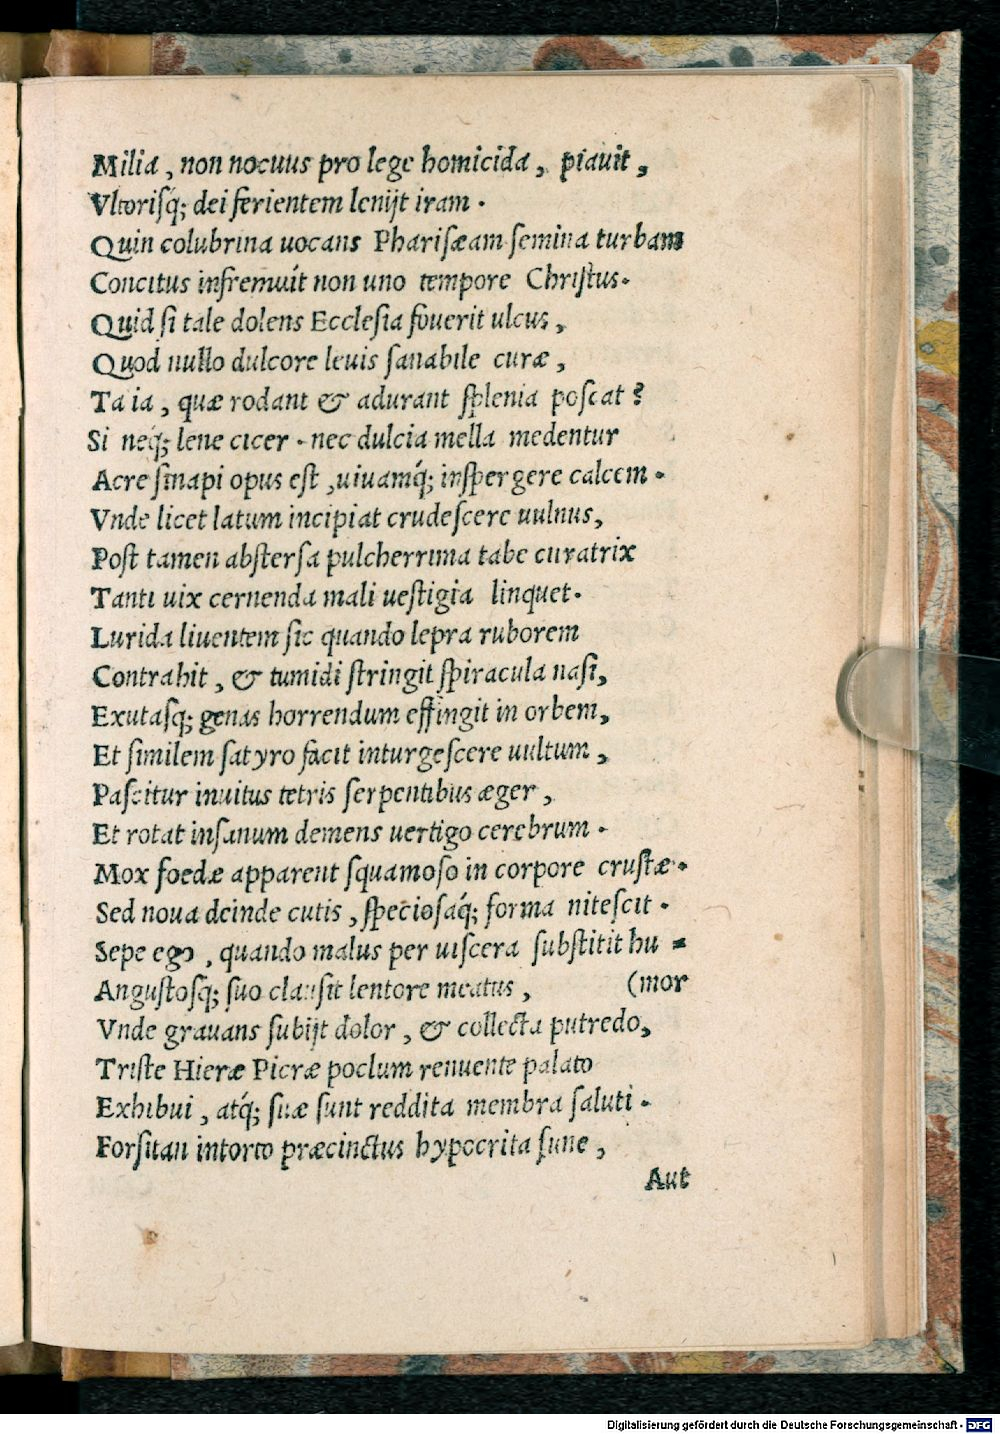 Milia, non nocuus pro lege homicida, piauit,
Vltorisq́; dei ferientem lenijt iram.
Quin colubrina uocans Pharisæam semina turbam
Concitus infremuit non uno tempore Christus.
Quid si tale dolens Ecclesia fouerit ulcus,
Quod nullo dulcore leuis sanabile curæ,
Ta ia, quæ rodant & adurant splenia poscat?
Si neq́; lene cicer. nec dulcia mella medentur
Acre sinapi opus est, uiuamq́; inspergere calcem.
Vnde licet latum incipiat crudescere uulnus,
Post tamen abstersa pulcherrima tabe curatrix
Tanti uix cernenda mali uestigia linquet.
Lurida liuentem sic quando lepra ruborem
Contrahit, & tumidi stringit spiracula nasi,
Exutasq; genas horrendum effingit in orbem,
Et similem satyro facit inturgescere uultum,
Pascitur inuitus tetris serpentibus æger,
Et rotat insanum demens uertigo cerebrum.
Mox foedæ apparent squamoso in corpore crustæ.
Sed noua deinde cutis, speciosaq́; forma nitescit.
Sepe ego, quando malus per uiscera substitit hu=
Angustosq́; suo clausit lentore meatus, (mor
Vnde grauans subijt dolor, & collecta putredo,
Triste Hieræ Picræ poclum renuente palato
Exhibui, atq́; suæ sunt reddita membra saluti.
Forsitan intorto præcinctus hypocrita fune,
Aut
Digitalisierung gefördert durch die Deutsche Forschungsgemeinschaft - DFG